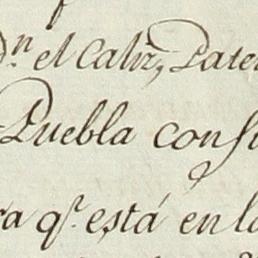 el Caliz, Pate
Puebla con su
ra q.e está en la